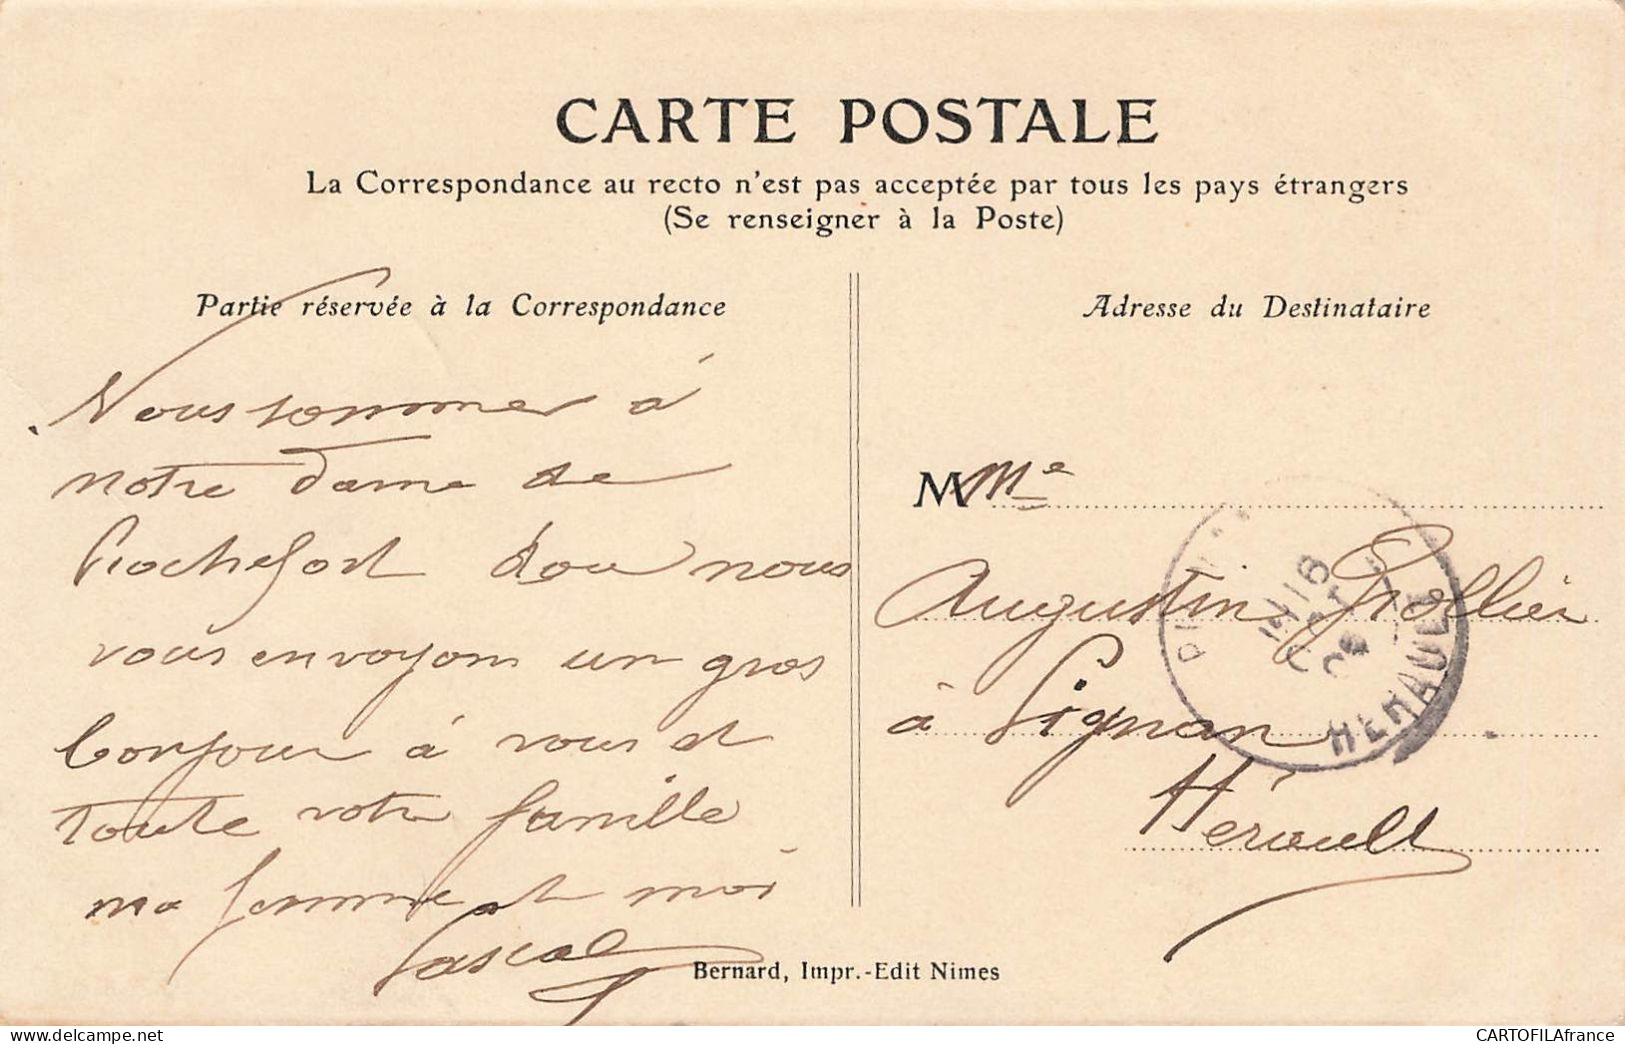 CARTE POSTALE
La Correspondance au recto n'est pas acceptée par tous les pays étrangers
(Se renseigner à la Poste)
Partie réservée à la Correspondance
Nous sommes à
notre dame de
Rochefort dou nous
vous envoyons un gros
bonjour à vous et
toute votre famille
ma femme et moi
Pascal
Adresse du Destinataire
MMe
Augustin Grollier
à Pignan
Hérault
HERAULT
Bernard, Impr.-Edit Nimes
CARTOFILAfrance